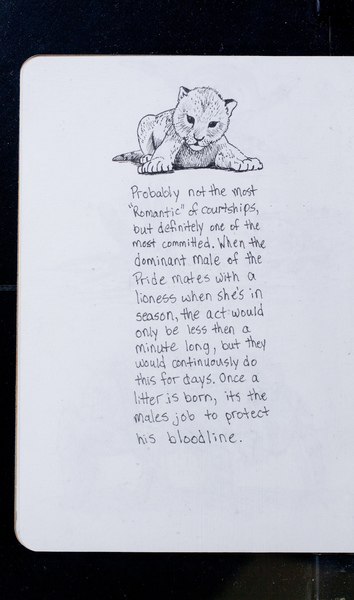 Probably not the most
"Romantic" of courtships,
but definitely one of the
most committed. When the
dominant male of the
Pride mates with a
lioness when she's in
season, the act would
only be less then a
minute long, but they
would continuously do
this for days. Once a
litter is born, its the
males job to protect
his bloodline.